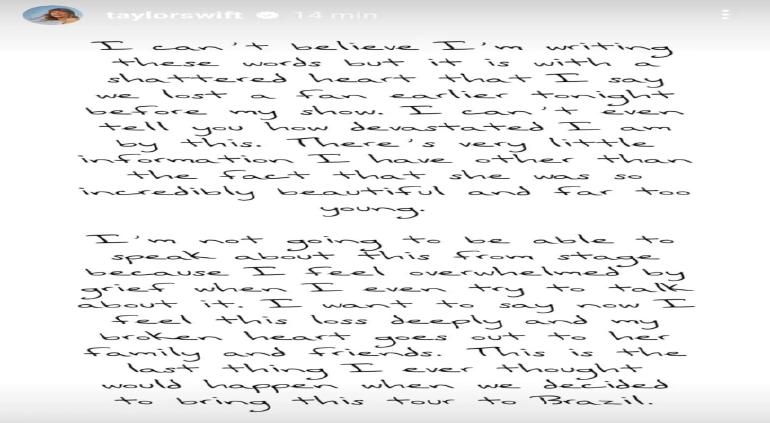 taylorswift 14 min
I can't believe I'm writing
these words but it is with a
shattered heart that I say
we lost a fan earlier tonight
before my show. I can't even
tell you how devastated I am
by this. There's very little
information I have other than
the fact that she was so
incredibly beautiful and far too
young.
I'm not going to be able to
speak about this from stage
because I feel overwhelmed by
grief when I even try to talk
about it. I want to say now I
feel this loss deeply and my
broken heart goes out to her
family and friends. This is the
last thing I ever thought
would happen when we decided
to bring this tour to Brazil.